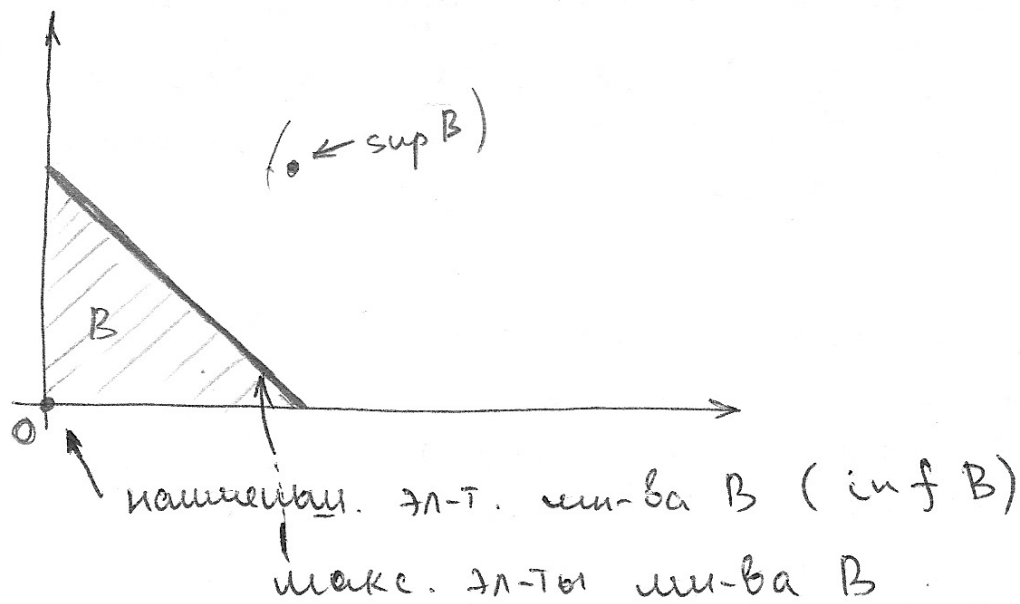 (. ← sup B)
B
0
наименьш. эл-т. мн-ва B (inf B)
макс. эл-ты мн-ва B.